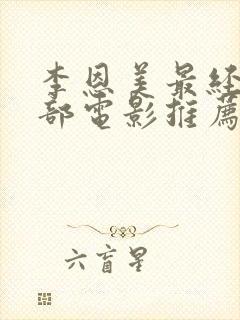 李恩美最经
部电影推薦
六盲星